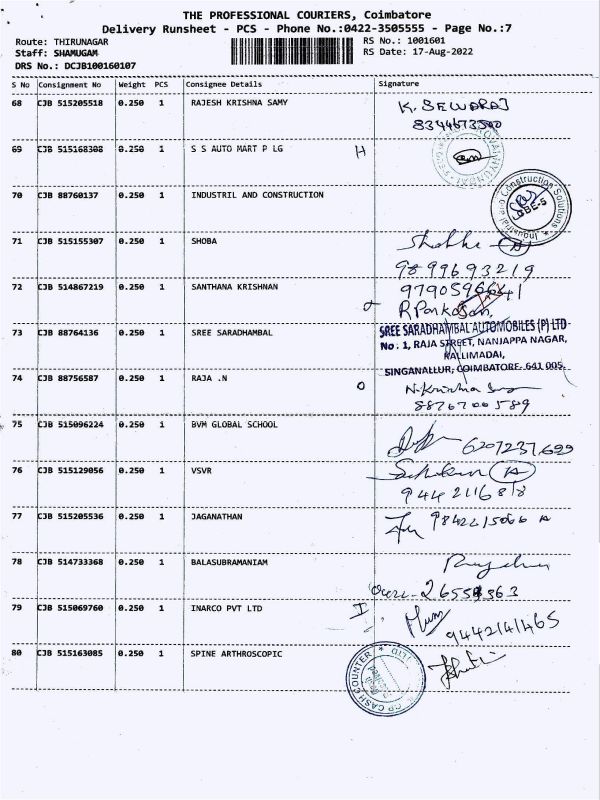 THE PROFESSIONAL COURIERS, Coimbatore
Delivery Runsheet - PCS - Phone No.:0422-3505555 - Page No.:7
Route: THIRUNAGAR
RS No.: 1001601
Staff: SHAMUGAM
RS Date: 17-Aug-2022
DRS No.: DCJB100160107
S No Consignment No Weight PCS Consignee Details Signature
68 CJB 515205518 0.250 1 RAJESH KRISHNA SAMY
69 CJB 515168308 0.250 1 S S AUTO MART P LG H
70 CJB 88760137 0.250 1 INDUSTRIL AND CONSTRUCTION
Industrial and Construction Solutions
CBE-5
71 CJB 515155307 0.250 1 SHOBA
9899693219
72 CJB 514867219 0.250 1 SANTHANA KRISHNAN
73 CJB 88764136 0.250 1 SREE SARADHAMBAL
SREE SARADHAMBAL AUTOMOBILES (P) LTD
No : 1, RAJA STREET, NANJAPPA NAGAR,
KALLIMADAI,
SINGANALLUR, COIMBATORE- 641 005.
74 CJB 88756587 0.250 1 RAJA .N
8876700589
75 CJB 515096224 0.250 1 BVM GLOBAL SCHOOL
6207237699
76 CJB 515129056 0.250 1 VSVR
9442116818
77 CJB 515205536 0.250 1 JAGANATHAN
78 CJB 514733368 0.250 1 BALASUBRAMANIAM
79 CJB 515069760 0.250 1 INARCO PVT LTD I
9442141465
80 CJB 515163085 0.250 1 SPINE ARTHROSCOPIC
CASH COUNTER